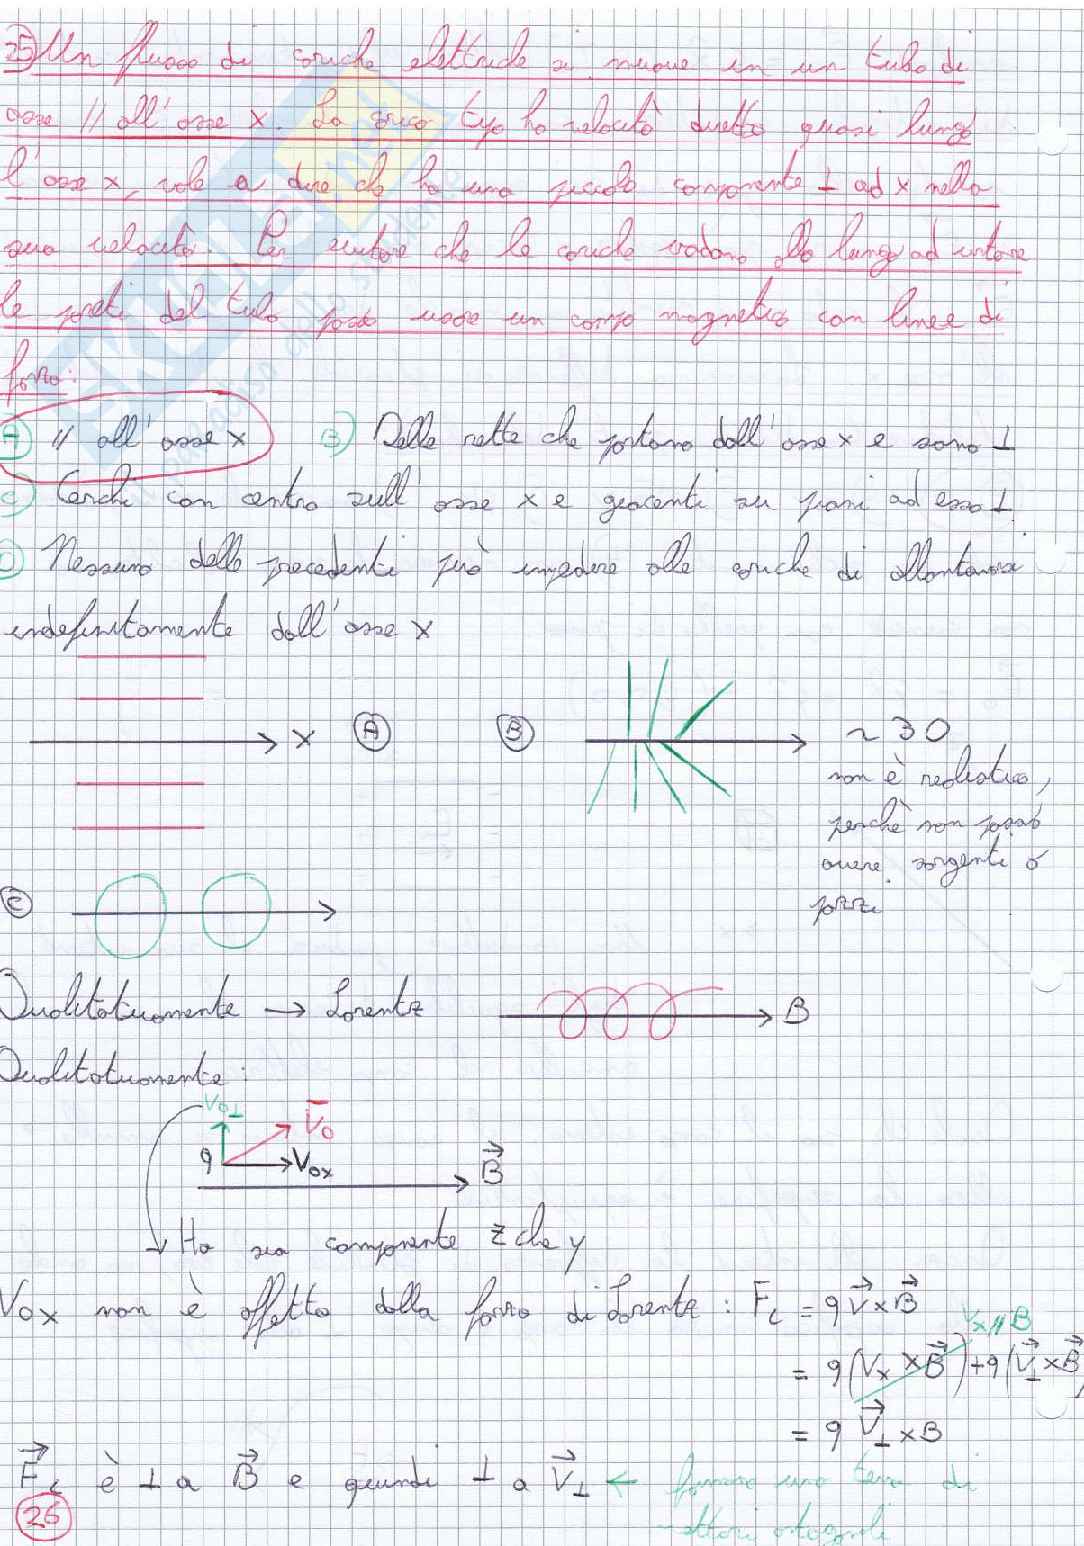 25) Un flusso di cariche elettriche si muove in un tubo di
asse // all'asse x. La carica tipo ha velocità diretta quasi lungo
l'asse x, vale a dire che ha una piccola componente ⊥ ad x nella
sua velocità. Per evitare che le cariche vadano alla lunga ad urtare
le pareti del tubo posso usare un campo magnetico con linee di
forza:
A) // all'asse x B) Delle rette che partano dall'asse x e sono ⊥
C) Cerchi con centro sull'asse x e giacenti su piani ad esso ⊥
D) Nessuno delle precedenti può impedire alle cariche di allontanarsi
indefinitamente dall'asse x
x A B ~ 30
non è realistico,
perché non posso
avere sorgenti o
pozzi
C
Qualitativamente → Lorentz B
Qualitativamente:
V₀⊥ V̄₀
q V₀ₓ B⃗
Ha sia componente z che y
V₀ₓ non è affetta dalla forza di Lorentz: F_L = q V⃗ x B⃗
Vₓ // B
= q (Vₓ x B⃗) + q (V⃗⊥ x B⃗)
= q V⃗⊥ x B
F⃗_L è ⊥ a B⃗ e quindi ⊥ a V⃗⊥ ← formano una terna di
vettori ortogonali
26